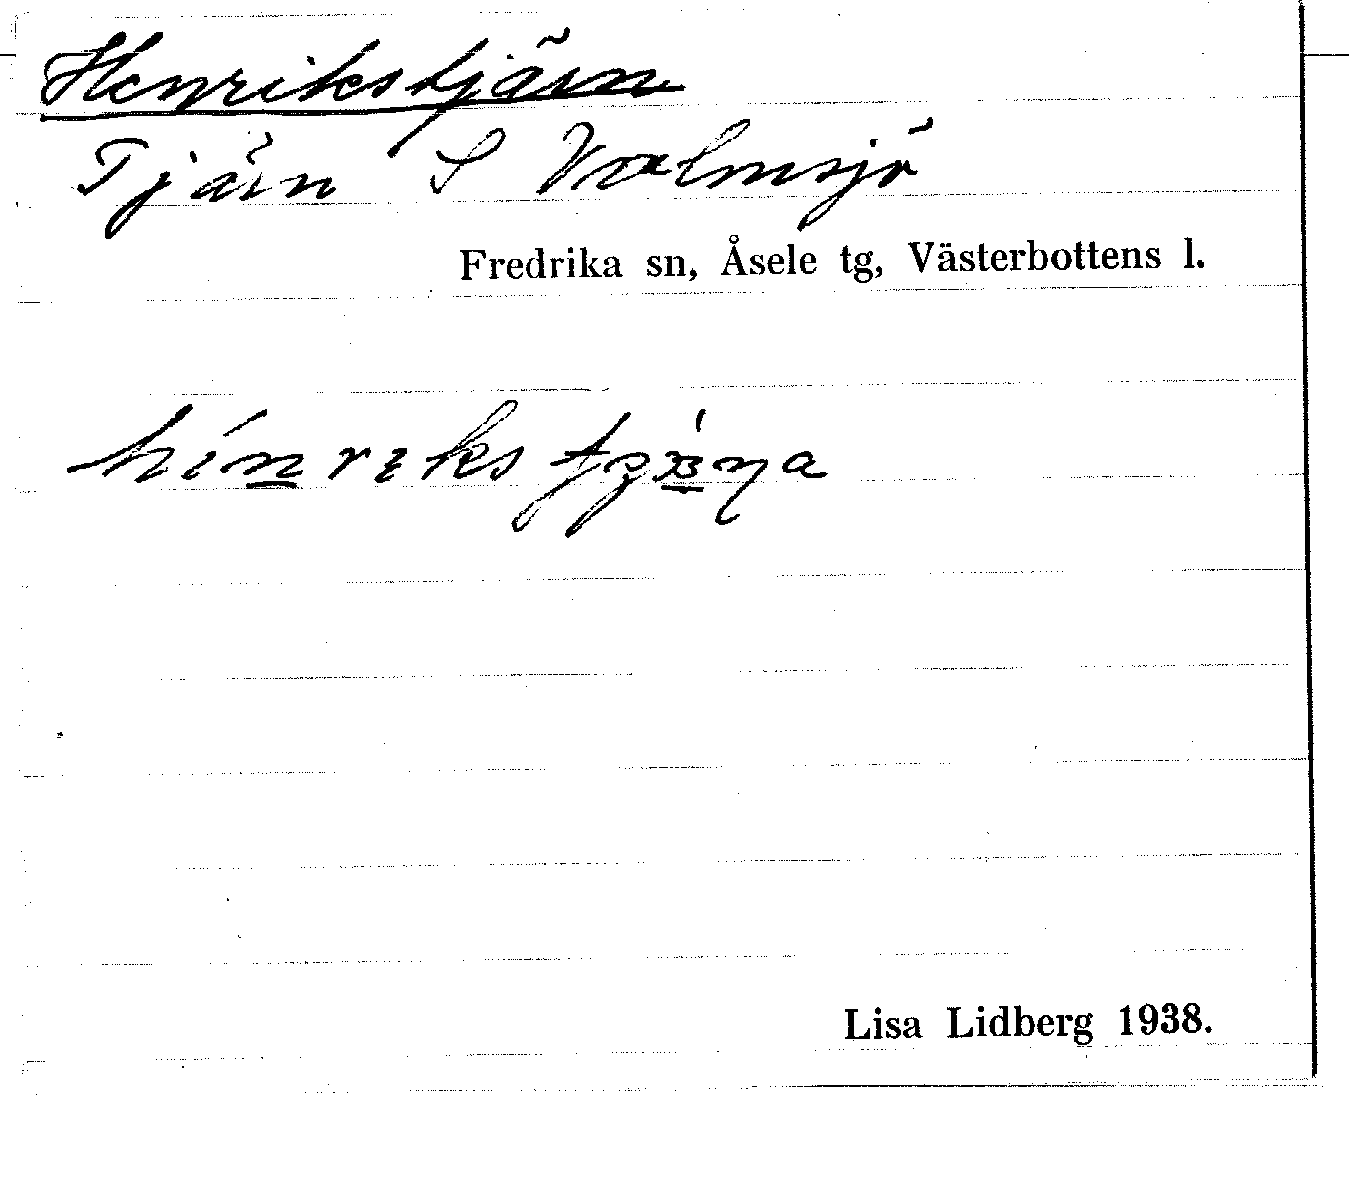 Henrikstjärn
Tjärn S Valmsjö
Fredrika sn, Åsele tg, Västerbottens l.
Lisa Lidberg 1938.